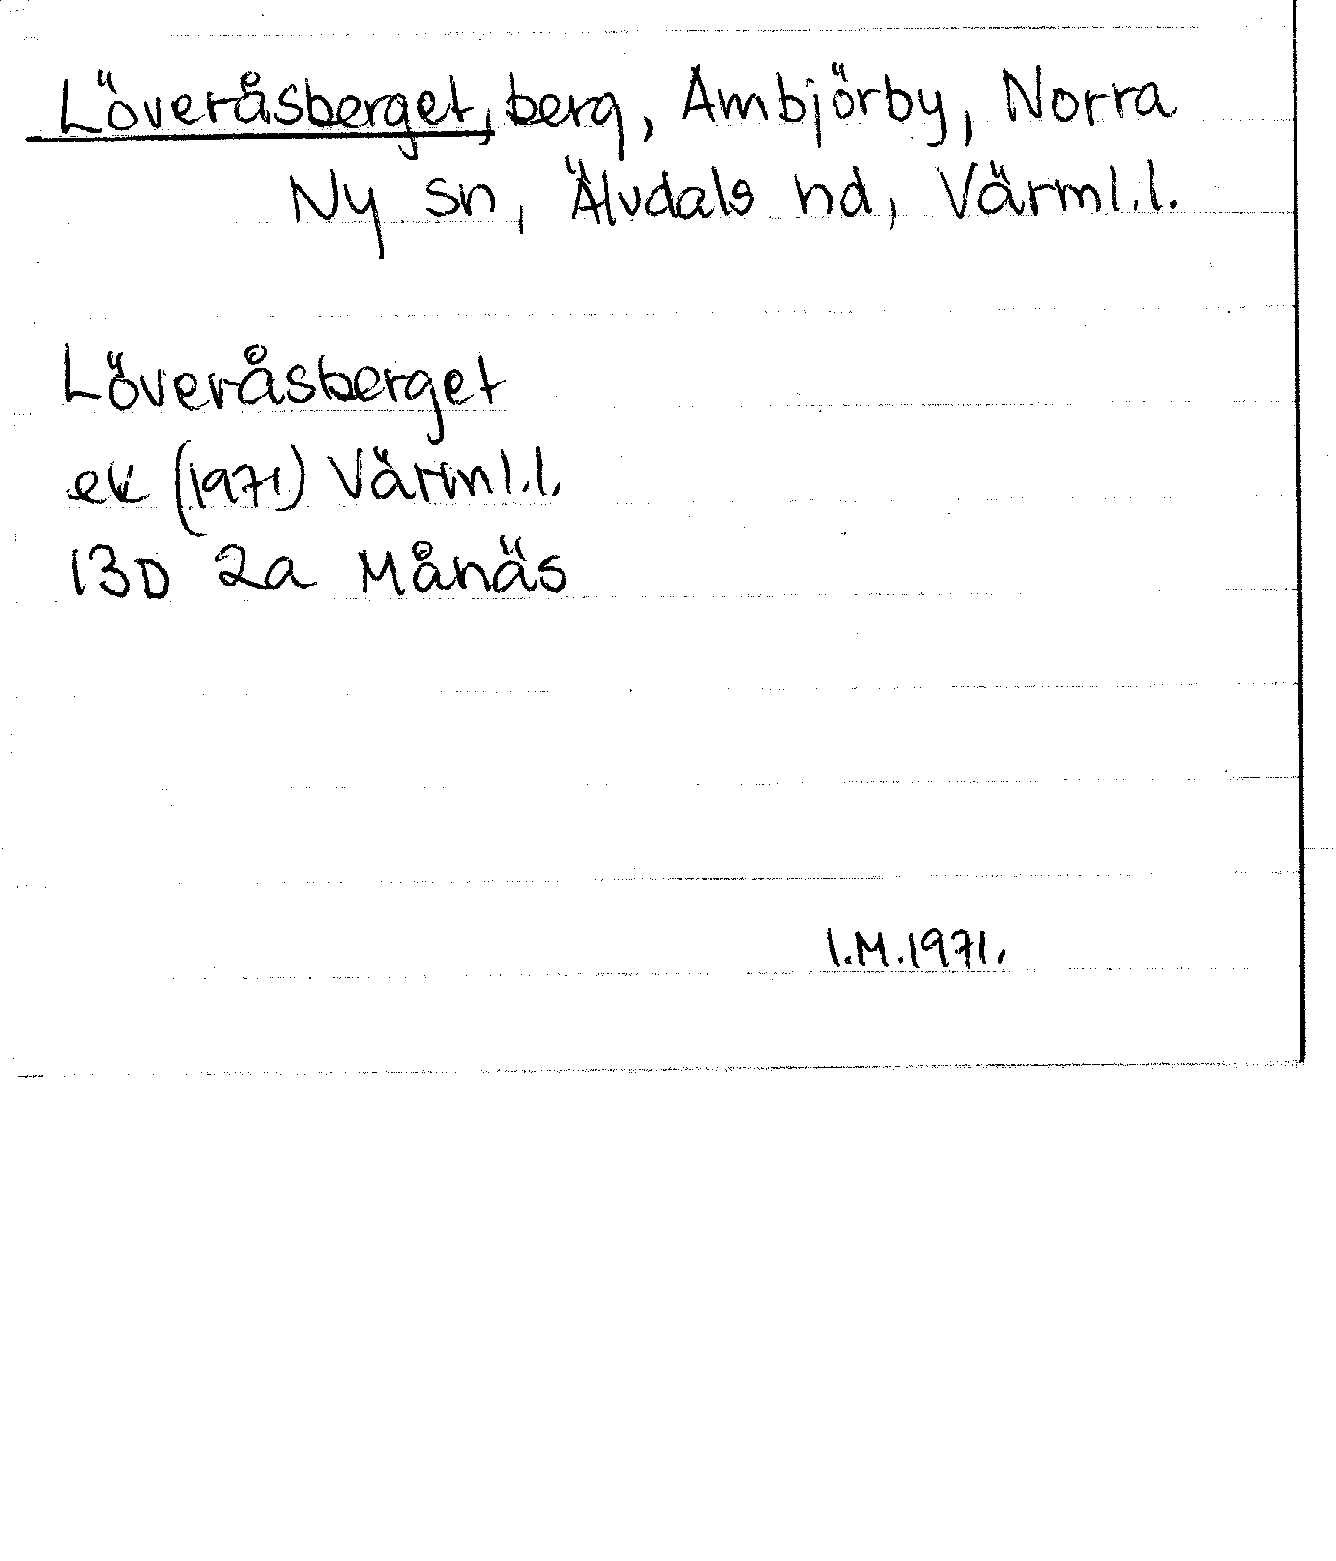 Löveråsberget, berg, Ambjörby, Norra
Ny sn, Älvdals hd, Värml.l.
Löveråsberget
ek (1971) Värml.l.
13D 2a Månäs
I.M.1971.